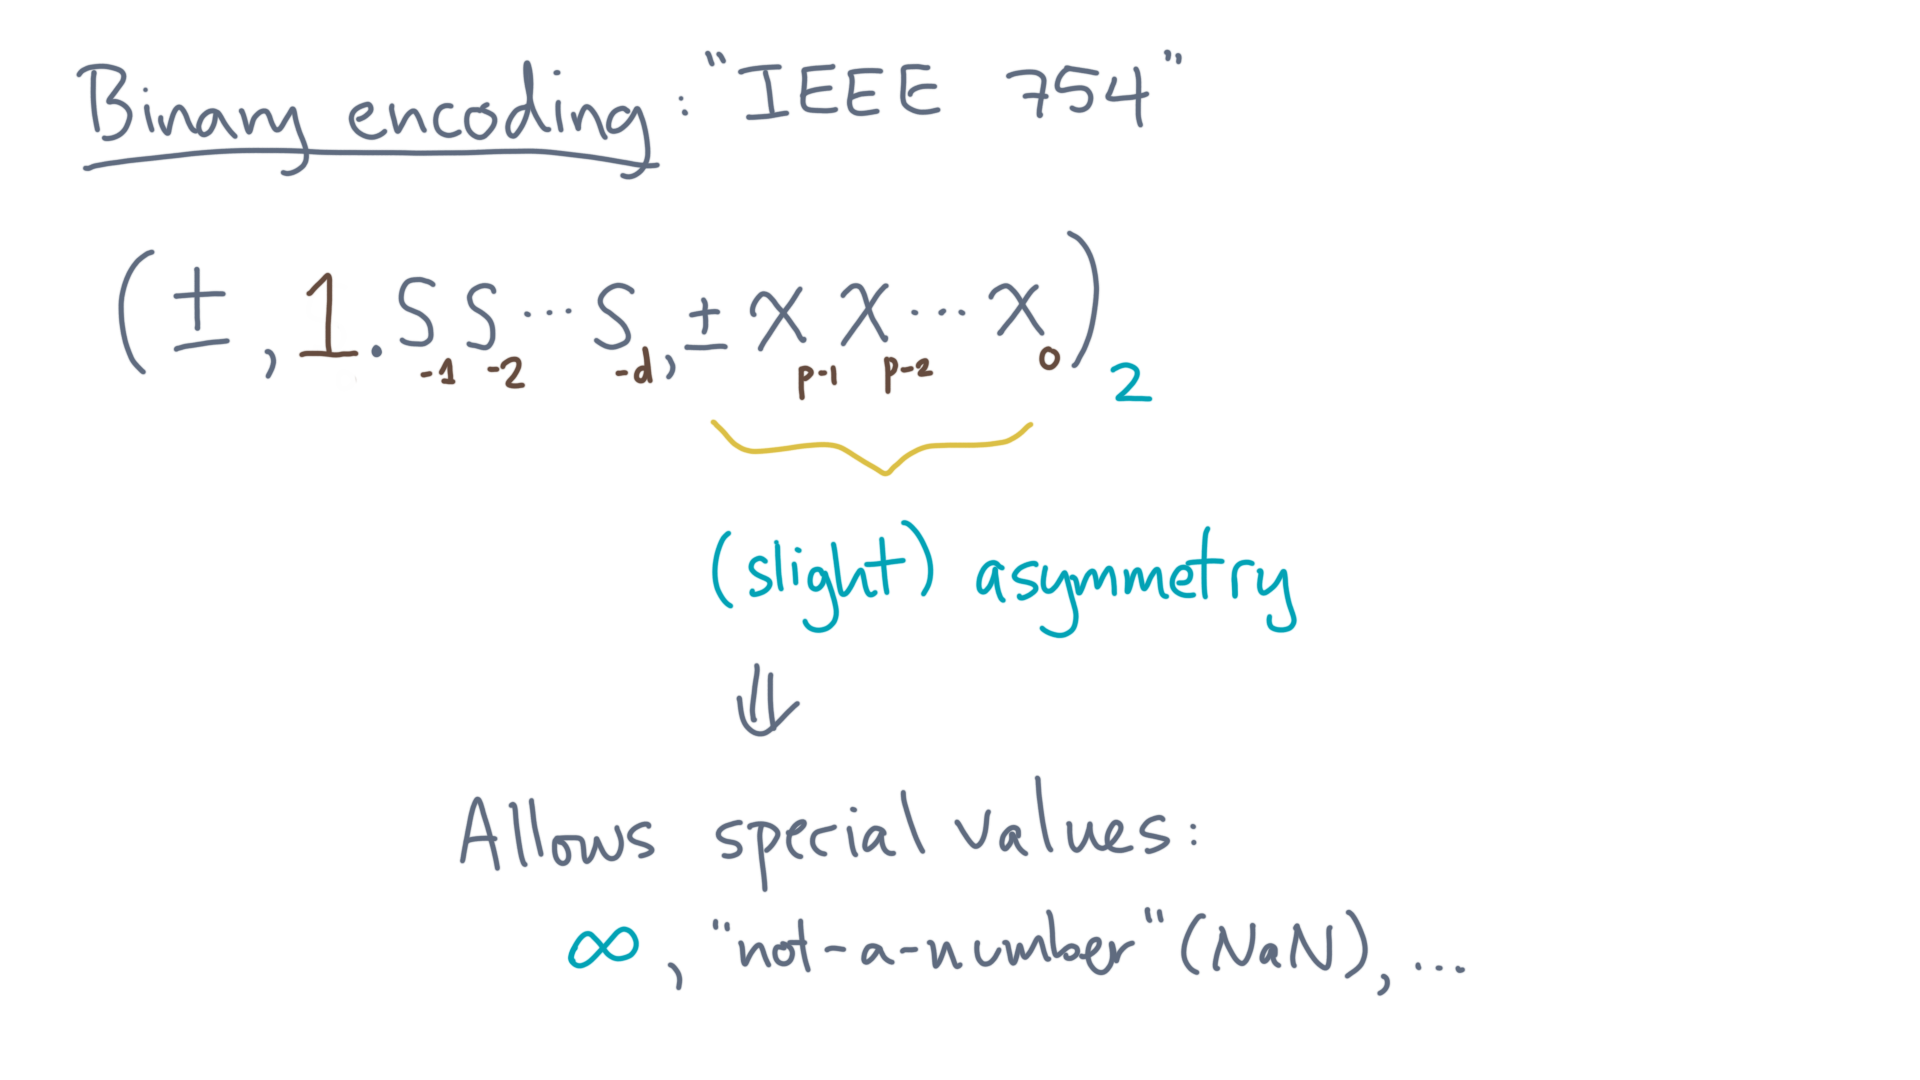 Binary encoding: "IEEE 754"
(±, 1.S₋₁S₋₂···S₋d, ±xₚ₋₁xₚ₋₂···x₀)₂
(slight) asymmetry
⇓
Allows special values:
∞, "not-a-number" (NaN), ...